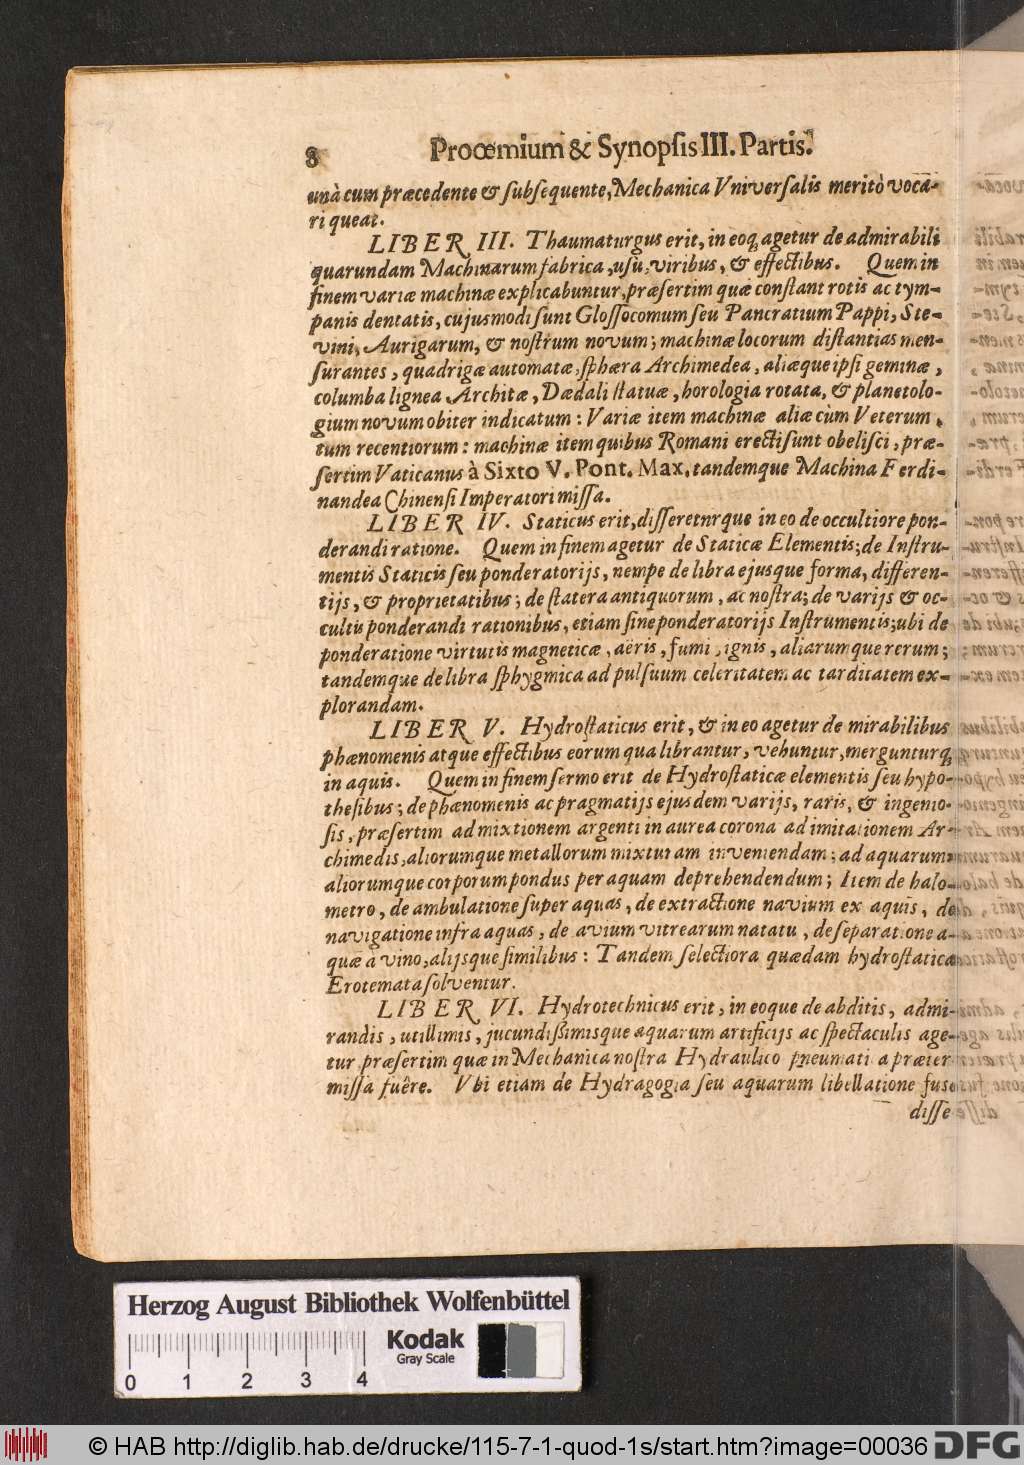 8 Proœmium & Synopſis III. Partis.
unà cum præcedente & ſubſequente, Mechanica Vniverſalis meritò voca-
ri queat.
LIBER III. Thaumaturgus erit, in eoq; agetur de admirabili
quarundam Machinarum fabrica, uſu, viribus, & effectibus. Quem in
finem variæ machinæ explicabuntur, præſertim quæ conſtant rotis ac tym-
panis dentatis, cujusmodi ſunt Gloſſocomum ſeu Pancratium Pappi, Ste-
vini, Aurigarum, & noſtrum novum; machinæ locorum diſtantias men-
ſurantes, quadrigæ automatæ, ſphæra Archimedea, aliæque ipſi geminæ,
columba lignea Architæ, Dædali ſtatuæ, horologia rotata, & planetolo-
gium novum obiter indicatum: Variæ item machinæ aliæ cùm Veterum,
tum recentiorum: machinæ item quibus Romani erecti ſunt obeliſci, præ-
ſertim Vaticanus à Sixto V. Pont. Max. tandemque Machina Ferdi-
nandea Chinenſi Imperatori miſſa.
LIBER IV. Staticus erit, diſſereturque in eo de occultiore pon-
derandi ratione. Quem in finem agetur de Staticæ Elementis; de Inſtru-
mentis Staticis ſeu ponderatorijs, nempe de libra ejusque forma, differen-
tijs, & proprietatibus; de ſtatera antiquorum, ac noſtra; de varijs & oc-
cultis ponderandi rationibus, etiam ſine ponderatorijs Inſtrumentis; ubi de
ponderatione virtutis magneticæ, aëris, fumi, ignis, aliarumque rerum;
tandemque de libra ſphygmica ad pulſuum celeritatem ac tarditatem ex-
plorandam.
LIBER V. Hydroſtaticus erit, & in eo agetur de mirabilibus
phænomenis atque effectibus eorum qua librantur, vehuntur, mergunturq;
in aquis. Quem in finem ſermo erit de Hydroſtaticæ elementis ſeu hypo-
theſibus; de phænomenis ac pragmatijs ejusdem varijs, raris, & ingenio-
ſis, præſertim ad mixtionem argenti in aurea corona ad imitationem Ar-
chimedis, aliorumque metallorum mixturam inveniendam; ad aquarum
aliorumque corporum pondus per aquam deprehendendum; Item de halo-
metro, de ambulatione ſuper aquas, de extractione navium ex aquis, de
navigatione infra aquas, de avium vitrearum natatu, de ſeparatione a-
quæ à vino, alijsque ſimilibus: Tandem ſelectiora quædam hydroſtatica
Erotemata ſolventur.
LIBER VI. Hydrotechnicus erit, in eoque de abditis, admi-
randis, utilimis, jucundiſſimisque aquarum artificijs ac ſpectaculis age-
tur, præſertim quæ in Mechanica noſtra Hydraulico pneumatica præter
miſſa fuêre. Vbi etiam de Hydragogia ſeu aquarum libellatione fuse
diſſe
Herzog August Bibliothek Wolfenbüttel
Kodak
Gray Scale
0 1 2 3 4
© HAB http://diglib.hab.de/drucke/115-7-1-quod-1s/start.htm?image=00036 DFG